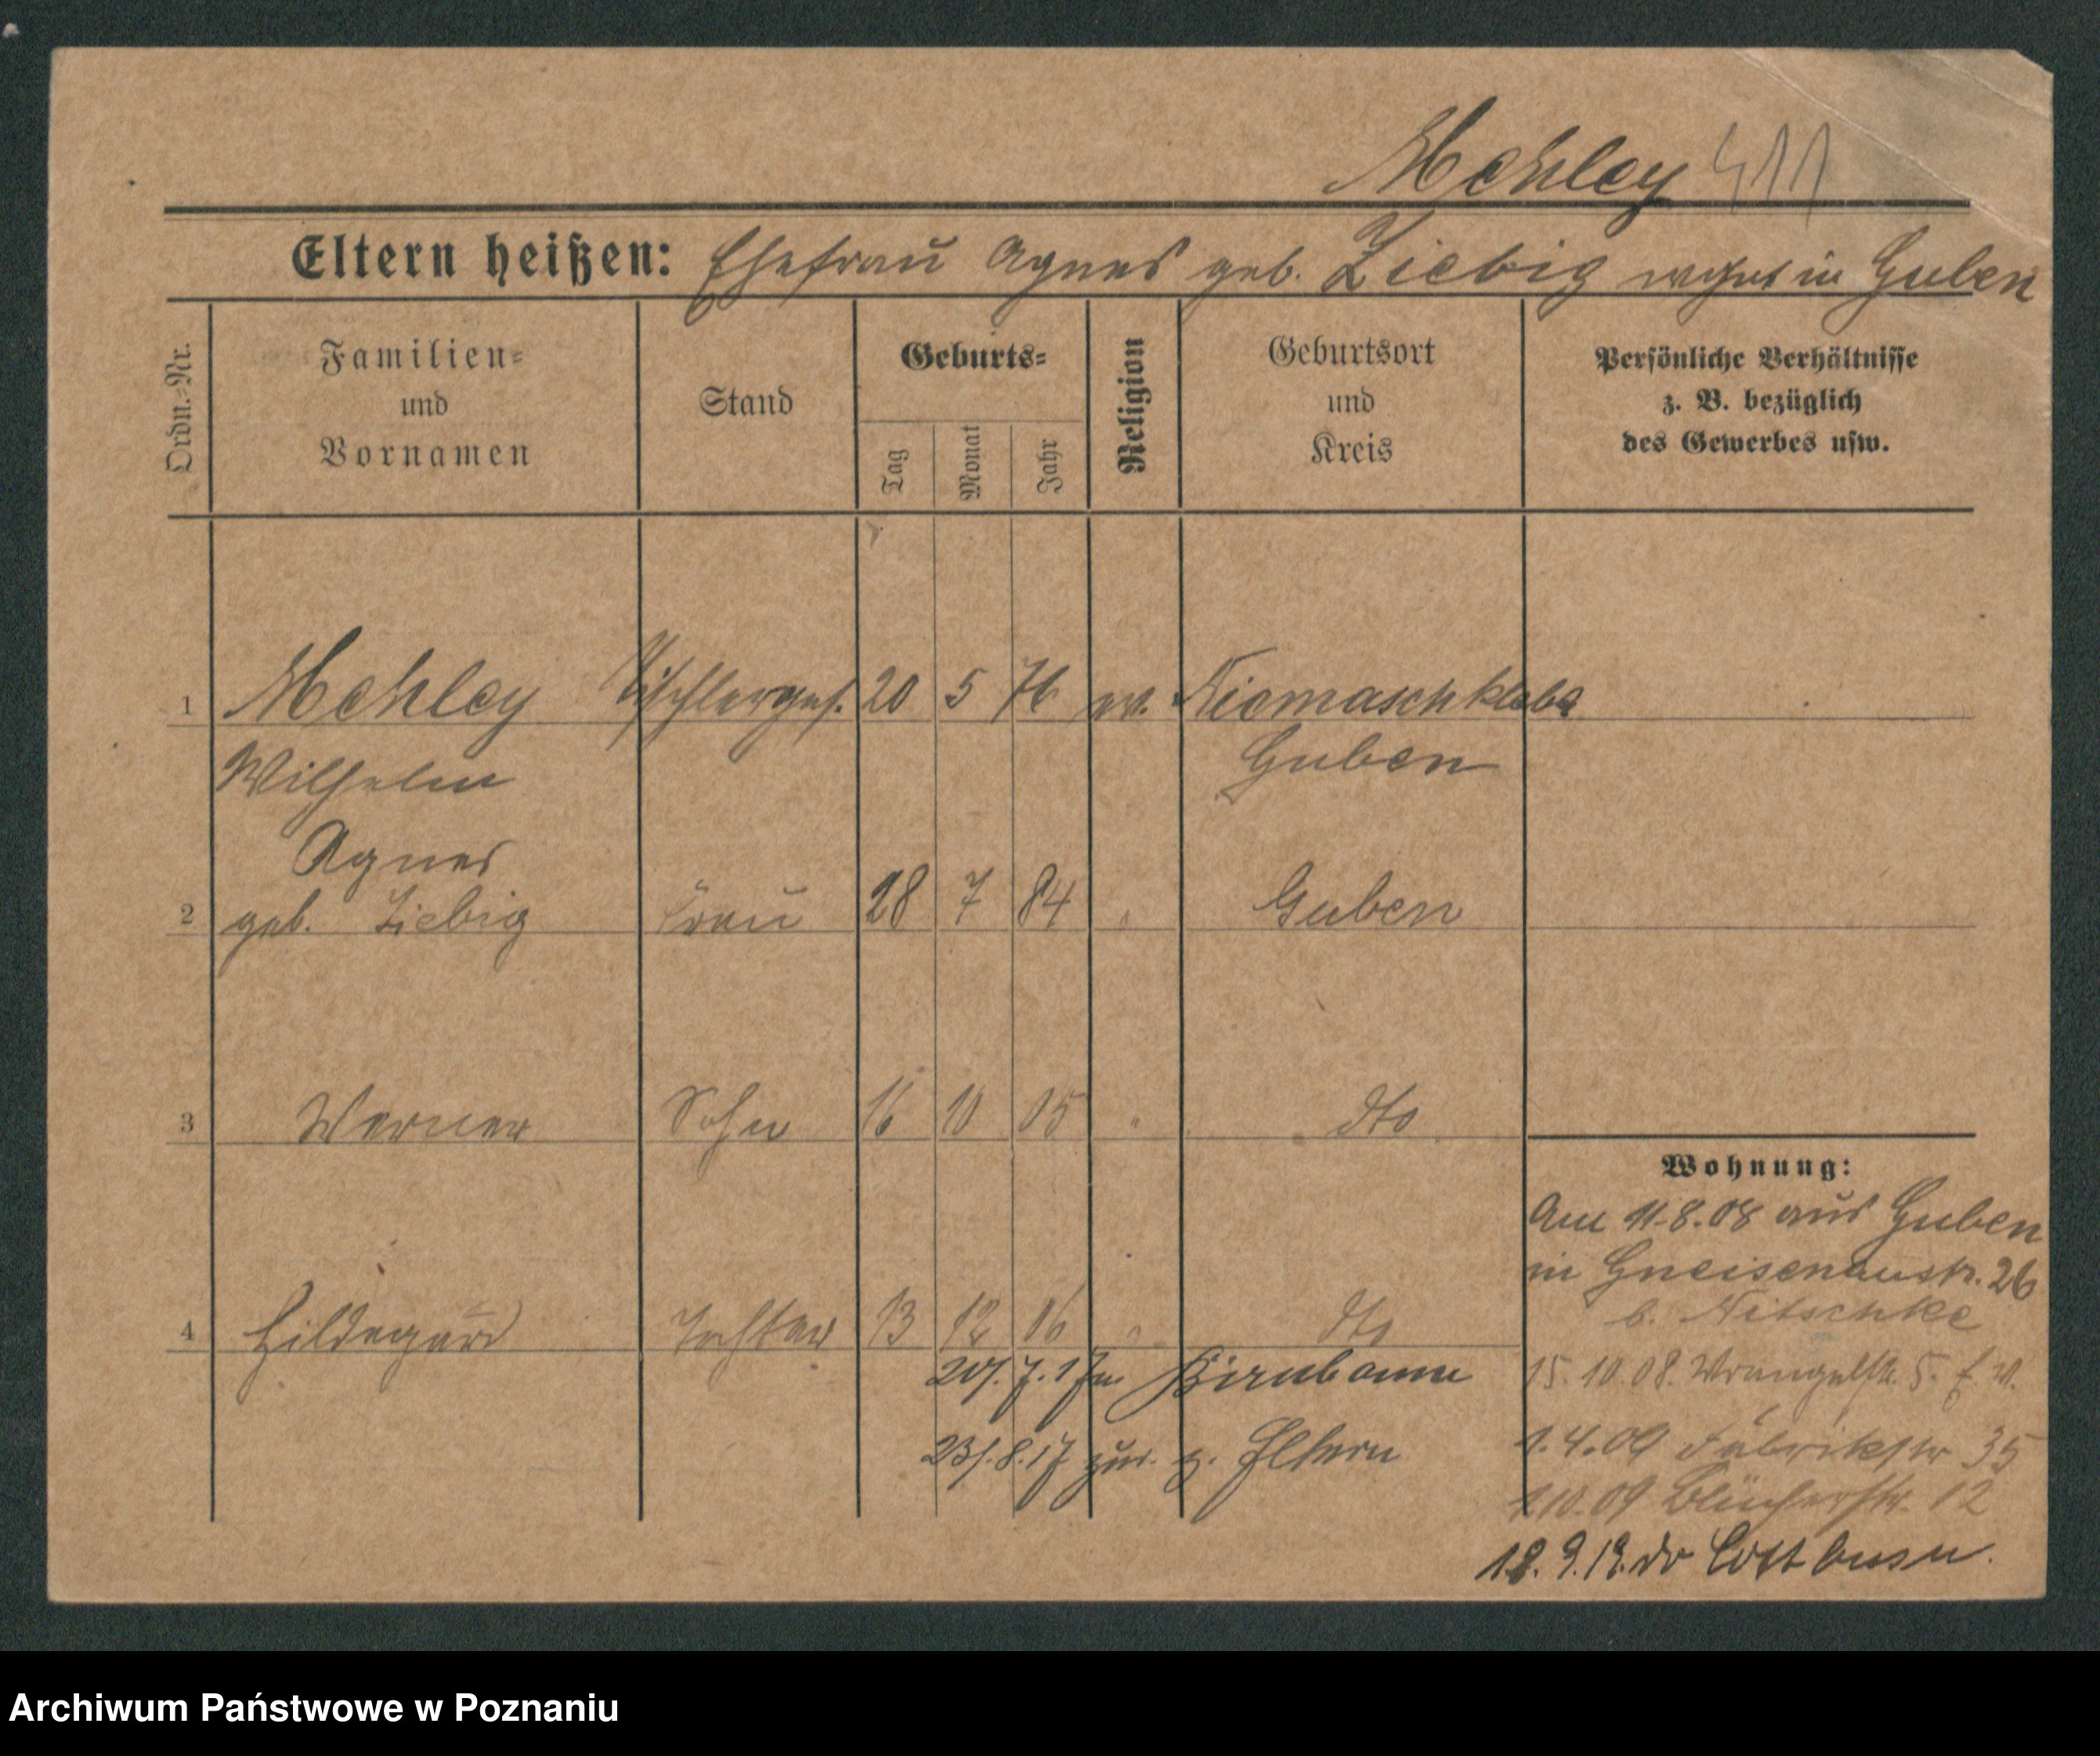 Mehley 411
Eltern heißen: Ehefrau Agnes geb. Liebig wohnt in Guben
Ordn.-Nr.
Familien-
und
Vornamen
Stand
Geburts-
Tag
Monat
Jahr
Religion
Geburtsort
und
Kreis
Persönliche Verhältnisse
z. B. bezüglich
des Gewerbes usw.
1 Mehley Tischlerges. 20 5 76 ev. Niemaschkleba
Wilhelm Guben
Agnes
2 geb. Liebig Frau 28 7 84 " Guben
3 Werner Sohn 16 10 05 " dto
4 Hildegard Tochter 13 12 06 " dto
20/.7.17 n. Birnbaum
23/.8.17 zur. z. Eltern
Wohnung:
Am 11.8.08 aus Guben
in Gneisenaustr. 26
b. Nitschke
15.10.08. Wrangelstr. 5. f. W.
1.4.09 Fabrikstr 35
1.10.09 Blücherstr. 12
18.9.19. Cottbus
Archiwum Państwowe w Poznaniu